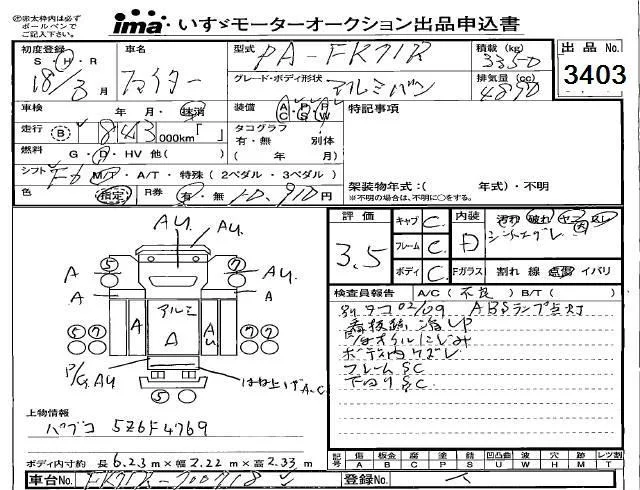 太枠内は必ず
ボールペンで
ご記入下さい。
ima いすゞモーターオークション出品申込書
初度登録 車名 型式 PA-FK71R 積載(kg) 3350 出品No. 3403
S・H・R 18/3月 ファイター グレード・ボディ形状 アルミバン 排気量(cc) 4890
車検 年・月・抹消 装備 AC PS PW 特記事項
走行 B 843 000km「 」 タコグラフ 有・無 別体
燃料 G・D・HV 他( ) ( 年 月)
シフト F6 MT・A/T・特殊(2ペダル・3ペダル) 架装物年式:( 年式)・不明
色 指定 R券 有・無 10,910円 ※不明の場合は、不明に○をする。
評価 3.5 キャブ C フレーム C ボディ C 内装 D 汚れ 破れ ヤニ 大
Fガラス 割れ 線 点傷 イバリ
AU. AU.
⑤ ⑦
A AU.
A A
アルミ
⑤⑦ A A AU ⑦⑦
P/G.AU はね上げA.C
⑤
検査員報告 A/C(不良)B/T( )
別タコ02/09 ABSランプ点灯
看板跡
ボデー内サビ
フレームSC
下回りSC
上物情報
パブコ 5Z6F4769
ボディ内寸約 長 6.23m×幅 2.22m×高 2.33m
記号 傷 A 板金 B 腐 C 塗 P 錆 S 凹凸曲 U 波 W 穴 H 跡 M レツ割 T
車台No. FK71R-700718 登録No.